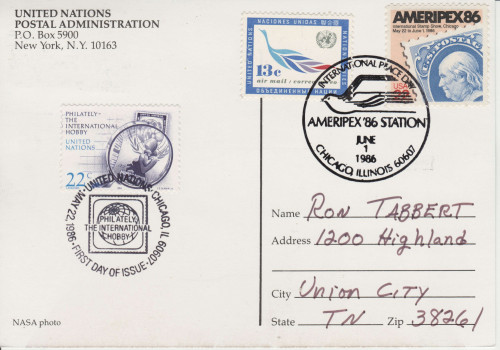 UNITED NATIONS
POSTAL ADMINISTRATION
P.O. Box 5900
New York, N.Y. 10163
NATIONS UNIES
NACIONES UNIDAS
UNITED NATIONS
13c
air mail
ОБЪЕДИНЕННЫЕ НАЦИИ
AMERIPEX 86
International Stamp Show, Chicago
May 22 to June 1, 1986
USA
INTERNATIONAL PEACE DAY
AMERIPEX '86 STATION
JUNE
1
1986
CHICAGO, ILLINOIS 60607
PHILATELY-
THE
INTERNATIONAL
HOBBY
UNITED
NATIONS
22c
UNITED NATIONS, CHICAGO, IL 60607
MAY 22, 1986 - FIRST DAY OF ISSUE
PHILATELY
THE INTERNATIONAL
HOBBY
Name Ron Tabbert
Address 1200 Highland
City Union City
State TN Zip 38261
NASA photo